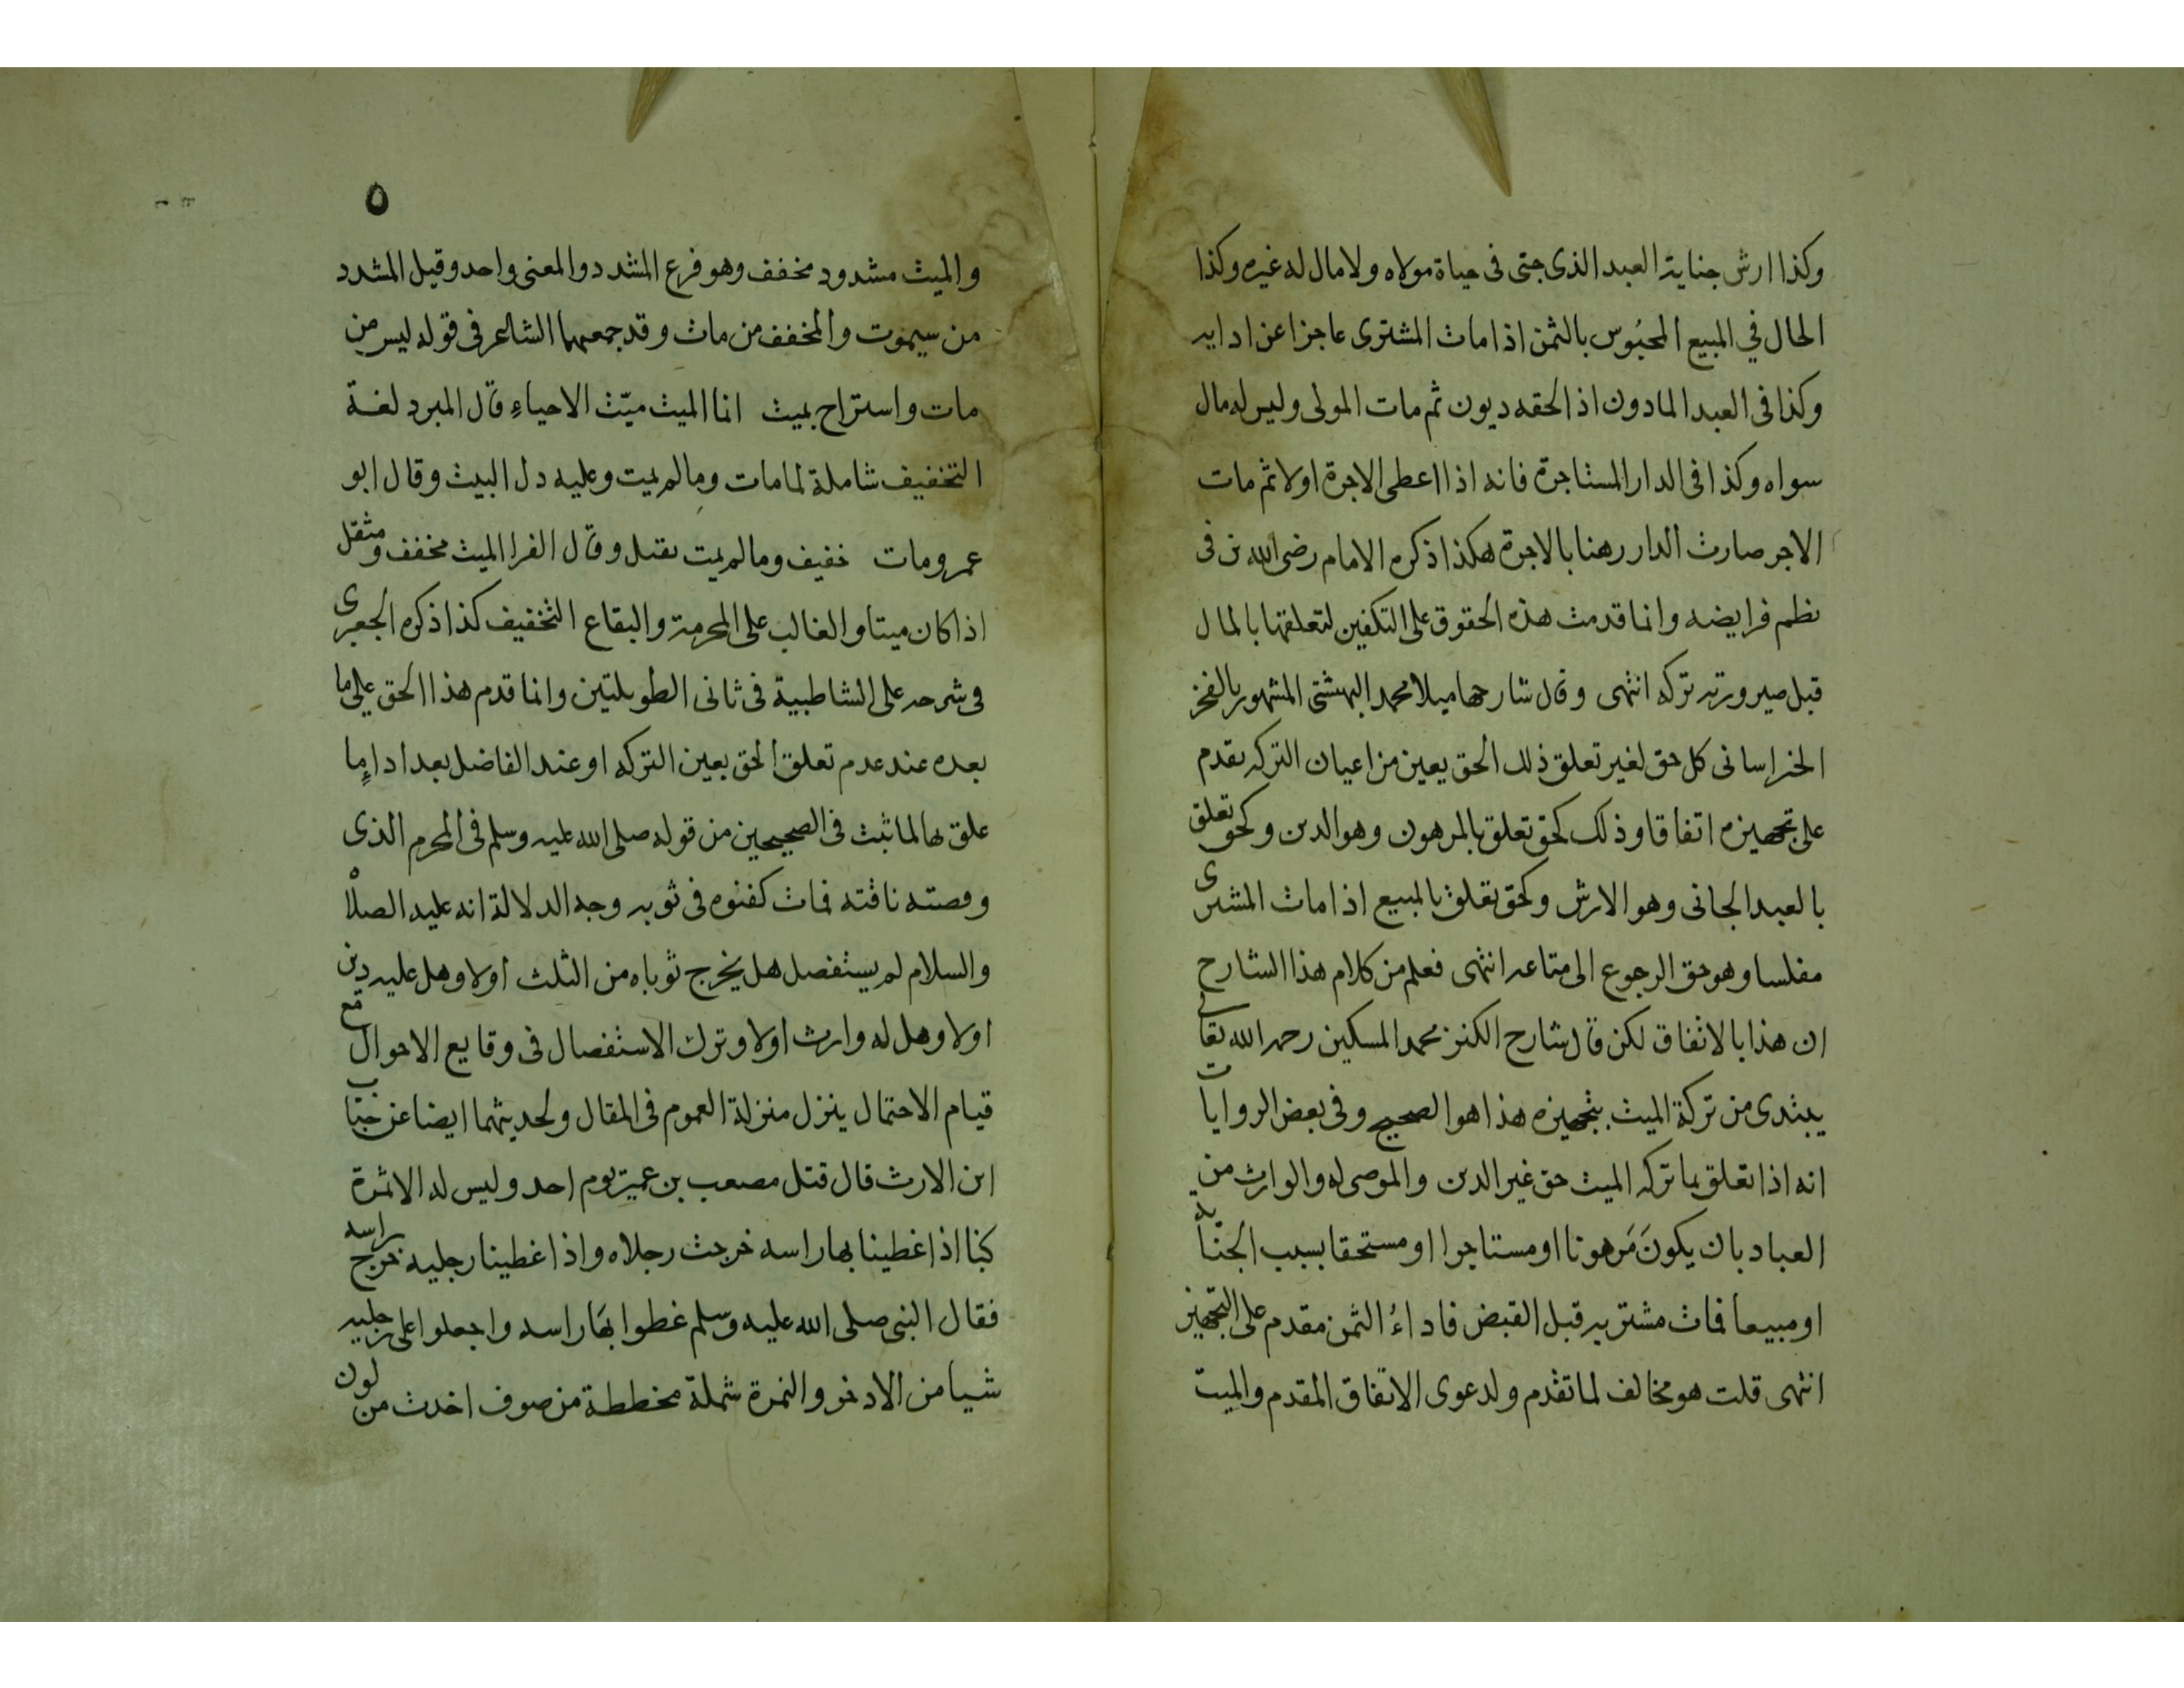 وكذا ارش جناية العبد الذى جنى فى حياة مولاه ولا مال له غيره وكذا
الحال في المبيع المحبُوس بالثمن اذا مات المشترى عاجزا عن ادايه
وكذا فى العبد المادون اذ الحقه ديون ثم مات المولى وليس له مال
سواه وكذا فى الدار المستاجرة فانه اذا اعطى الاجرة اولا ثم مات
الاجر صارت الدار رهنا بالاجرة هكذا ذكره الامام رضى الله فى
نظم فرايضه وانما قدمت هذه الحقوق على التكفين لتعلقها بالمال
قبل صيرورته تركه انتهى وقال شارحها ميلا محمد البهشتى المشهور بالفخر
الخراسانى كل حق لغير تعلق ذلك الحق بعين من اعيان التركه يقدم
على تجهيزه اتفاقا وذلك كحق تعلق بالمرهون وهو الدين وكحق تعلق
بالعبد الجانى وهو الارش وكحق تعلق بالمبيع اذا مات المشترى
مفلسا وهو حق الرجوع الى متاعه انتهى فعلم من كلام هذا الشارح
ان هذا بالاتفاق لكن قال شارح الكنز محمد المسكين رحمه الله تعالى
يبتدى من تركة الميت بتجهيزه هذا هو الصحيح وفى بعض الروايات
انه اذا تعلق بما تركه الميت حق غير الدين والموصى له والوارث من
العباد بان يكونَ مَرهونا او مستاجرا او مستحقا بسبب الجناية
او مبيعا فمات مشتريه قبل القبض فاداءُ الثمن مقدم على التجهيز
انتهى قلت هو مخالف لما تقدم ولدعوى الاتفاق المقدم والميت
٥
والميت مشدود مخفف وهو فرع المشدد والمعنى واحد وقيل المشدد
من سيموت والمخفف من مات وقد جمعهما الشاعر فى قوله ليس من
مات واستراح بميت انما الميت ميّت الاحياءِ قال المبرد لغة
التخفيف شاملة لمامات ومالم يمت وعليه دل البيت وقال ابو
عمرو مات خفيف ومالم يمت ثقيل وقال الفرا الميت مخفف ومثقل
اذا كان ميتا والغالب على المحرمة والبقاع التخفيف كذا ذكره الجعبرى
فى شرحه على الشاطبية فى ثانى الطويلتين وانما قدم هذا الحق على ما
بعده عند عدم تعلق الحق بعين التركه او عند الفاضل بعد اداءِ ما
علق بها لما ثبت فى الصحيحين من قوله صلى الله عليه وسلم فى المحرم الذى
وقصته ناقته فمات كفنوه فى ثوبيه وجه الدلالة انه عليه الصلاة
والسلام لم يستفصل هل يخرج ثوباه من الثلث اولا وهل عليه دين
اولا وهل له وارث اولا وترك الاستفصال فى وقايع الاحوال مع
قيام الاحتمال ينزل منزلة العموم فى المقال ولحديثهما ايضا عن خباب
ابن الارت قال قتل مصعب بن عمير يوم احد وليس له الا نمرة
كنا اذا غطينا بها راسه خرجت رجلاه واذا غطينا رجليه خرج راسه
فقال النبى صلى الله عليه وسلم غطوا بهَا راسه واجعلوا على رجليه
شيا من الاذخر والنمرة شملة مخططة من صوف اخذت من لون